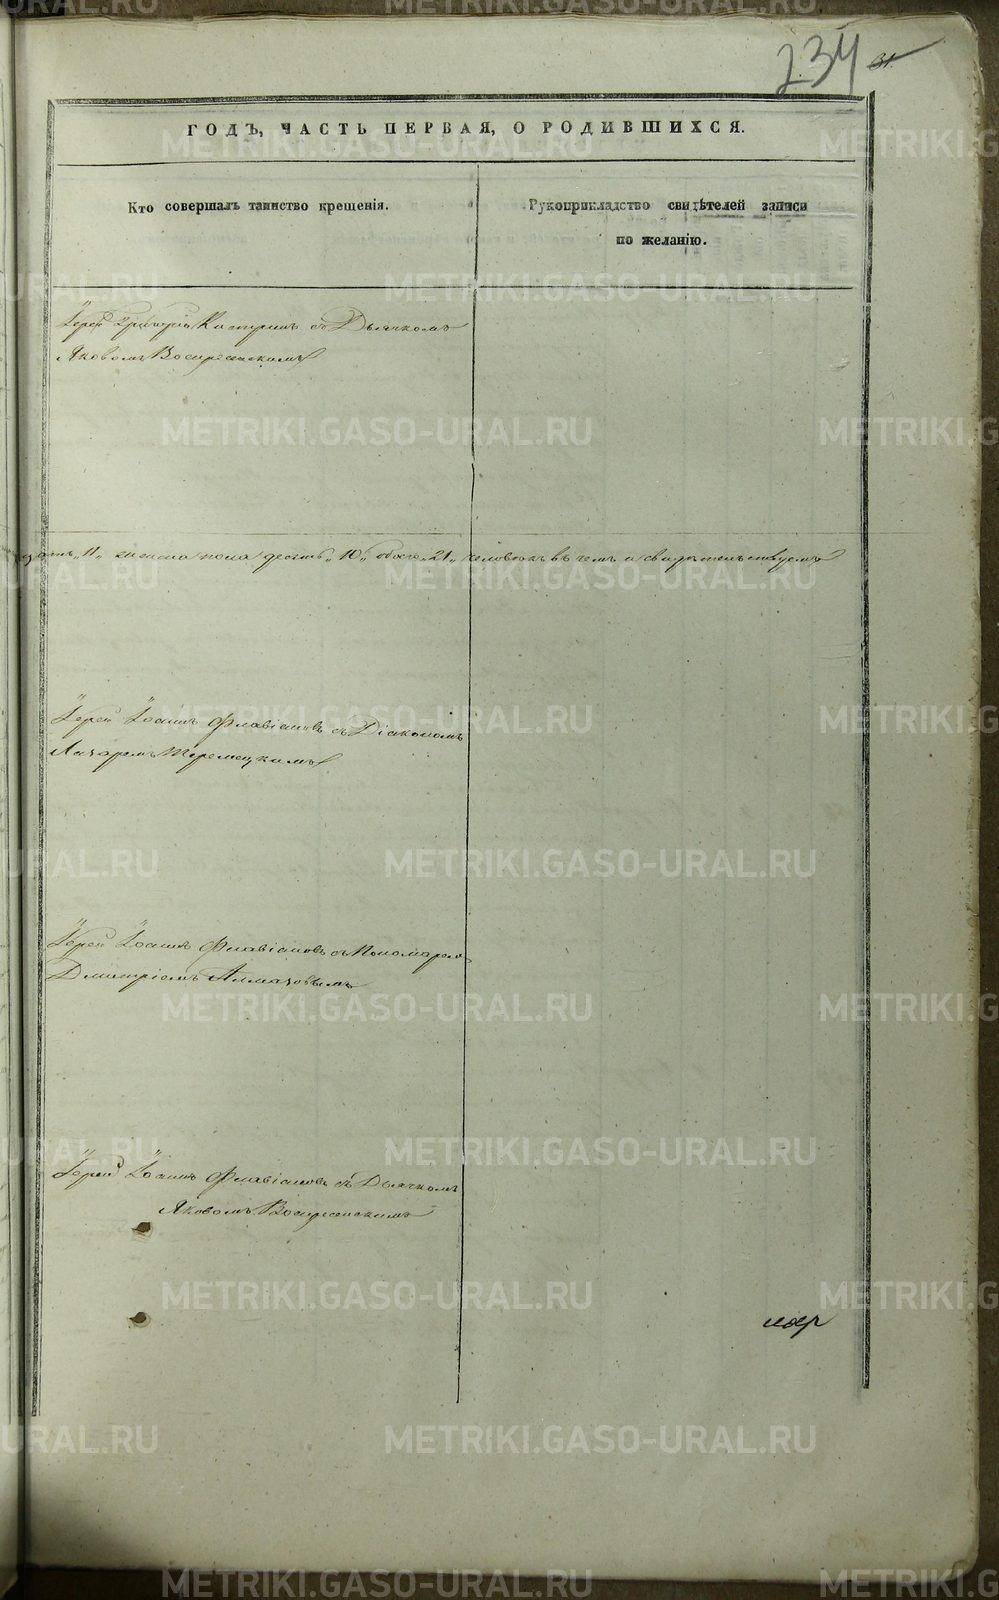 234 31.
ГОДЪ, ЧАСТЬ ПЕРВАЯ, О РОДИВШИХСЯ.
Кто совершалъ таинство крещенія.
Рукоприкладство свидѣтелей записи
по желанію.
Іерей Григорій съ Дьячкомъ
Яковомъ Воскресенскимъ
„11„ женска пола десять „10„ обоего „21„ человѣкъ въ чемъ и свидѣтельствуемъ
Іерей Іоаннъ Флавіановъ съ Діакономъ
Лазаремъ
Іерей Іоаннъ Флавіановъ съ Пономаремъ
Дмитріемъ Алмазовымъ
Іерей Іоаннъ Флавіановъ съ Дьячкомъ
Яковомъ Воскресенскимъ
METRIKI.GASO-URAL.RU